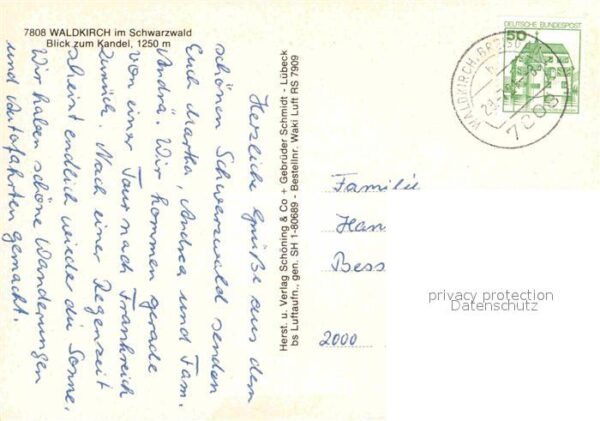 7808 WALDKIRCH im Schwarzwald
Blick zum Kandel, 1250 m
Herzliche Grüße aus dem
schönen Schwarzwald senden
Euch Martha, Andrea und Fam.
André. Wir kommen gerade
von einer Tour nach Frankreich
zurück. Nach einer Regenzeit
scheint endlich wieder die Sonne.
Wir haben schöne Wanderungen
und Autofahrten gemacht.
Herst. u. Verlag Schöning & Co + Gebrüder Schmidt - Lübeck
bs Luftaufn., gen. SH 1-80689 - Bestellnr. Waki Luft RS 7909
DEUTSCHE BUNDESPOST
50
WALDKIRCH
7808
Familie
Han
Bess
2000
privacy protection
Datenschutz